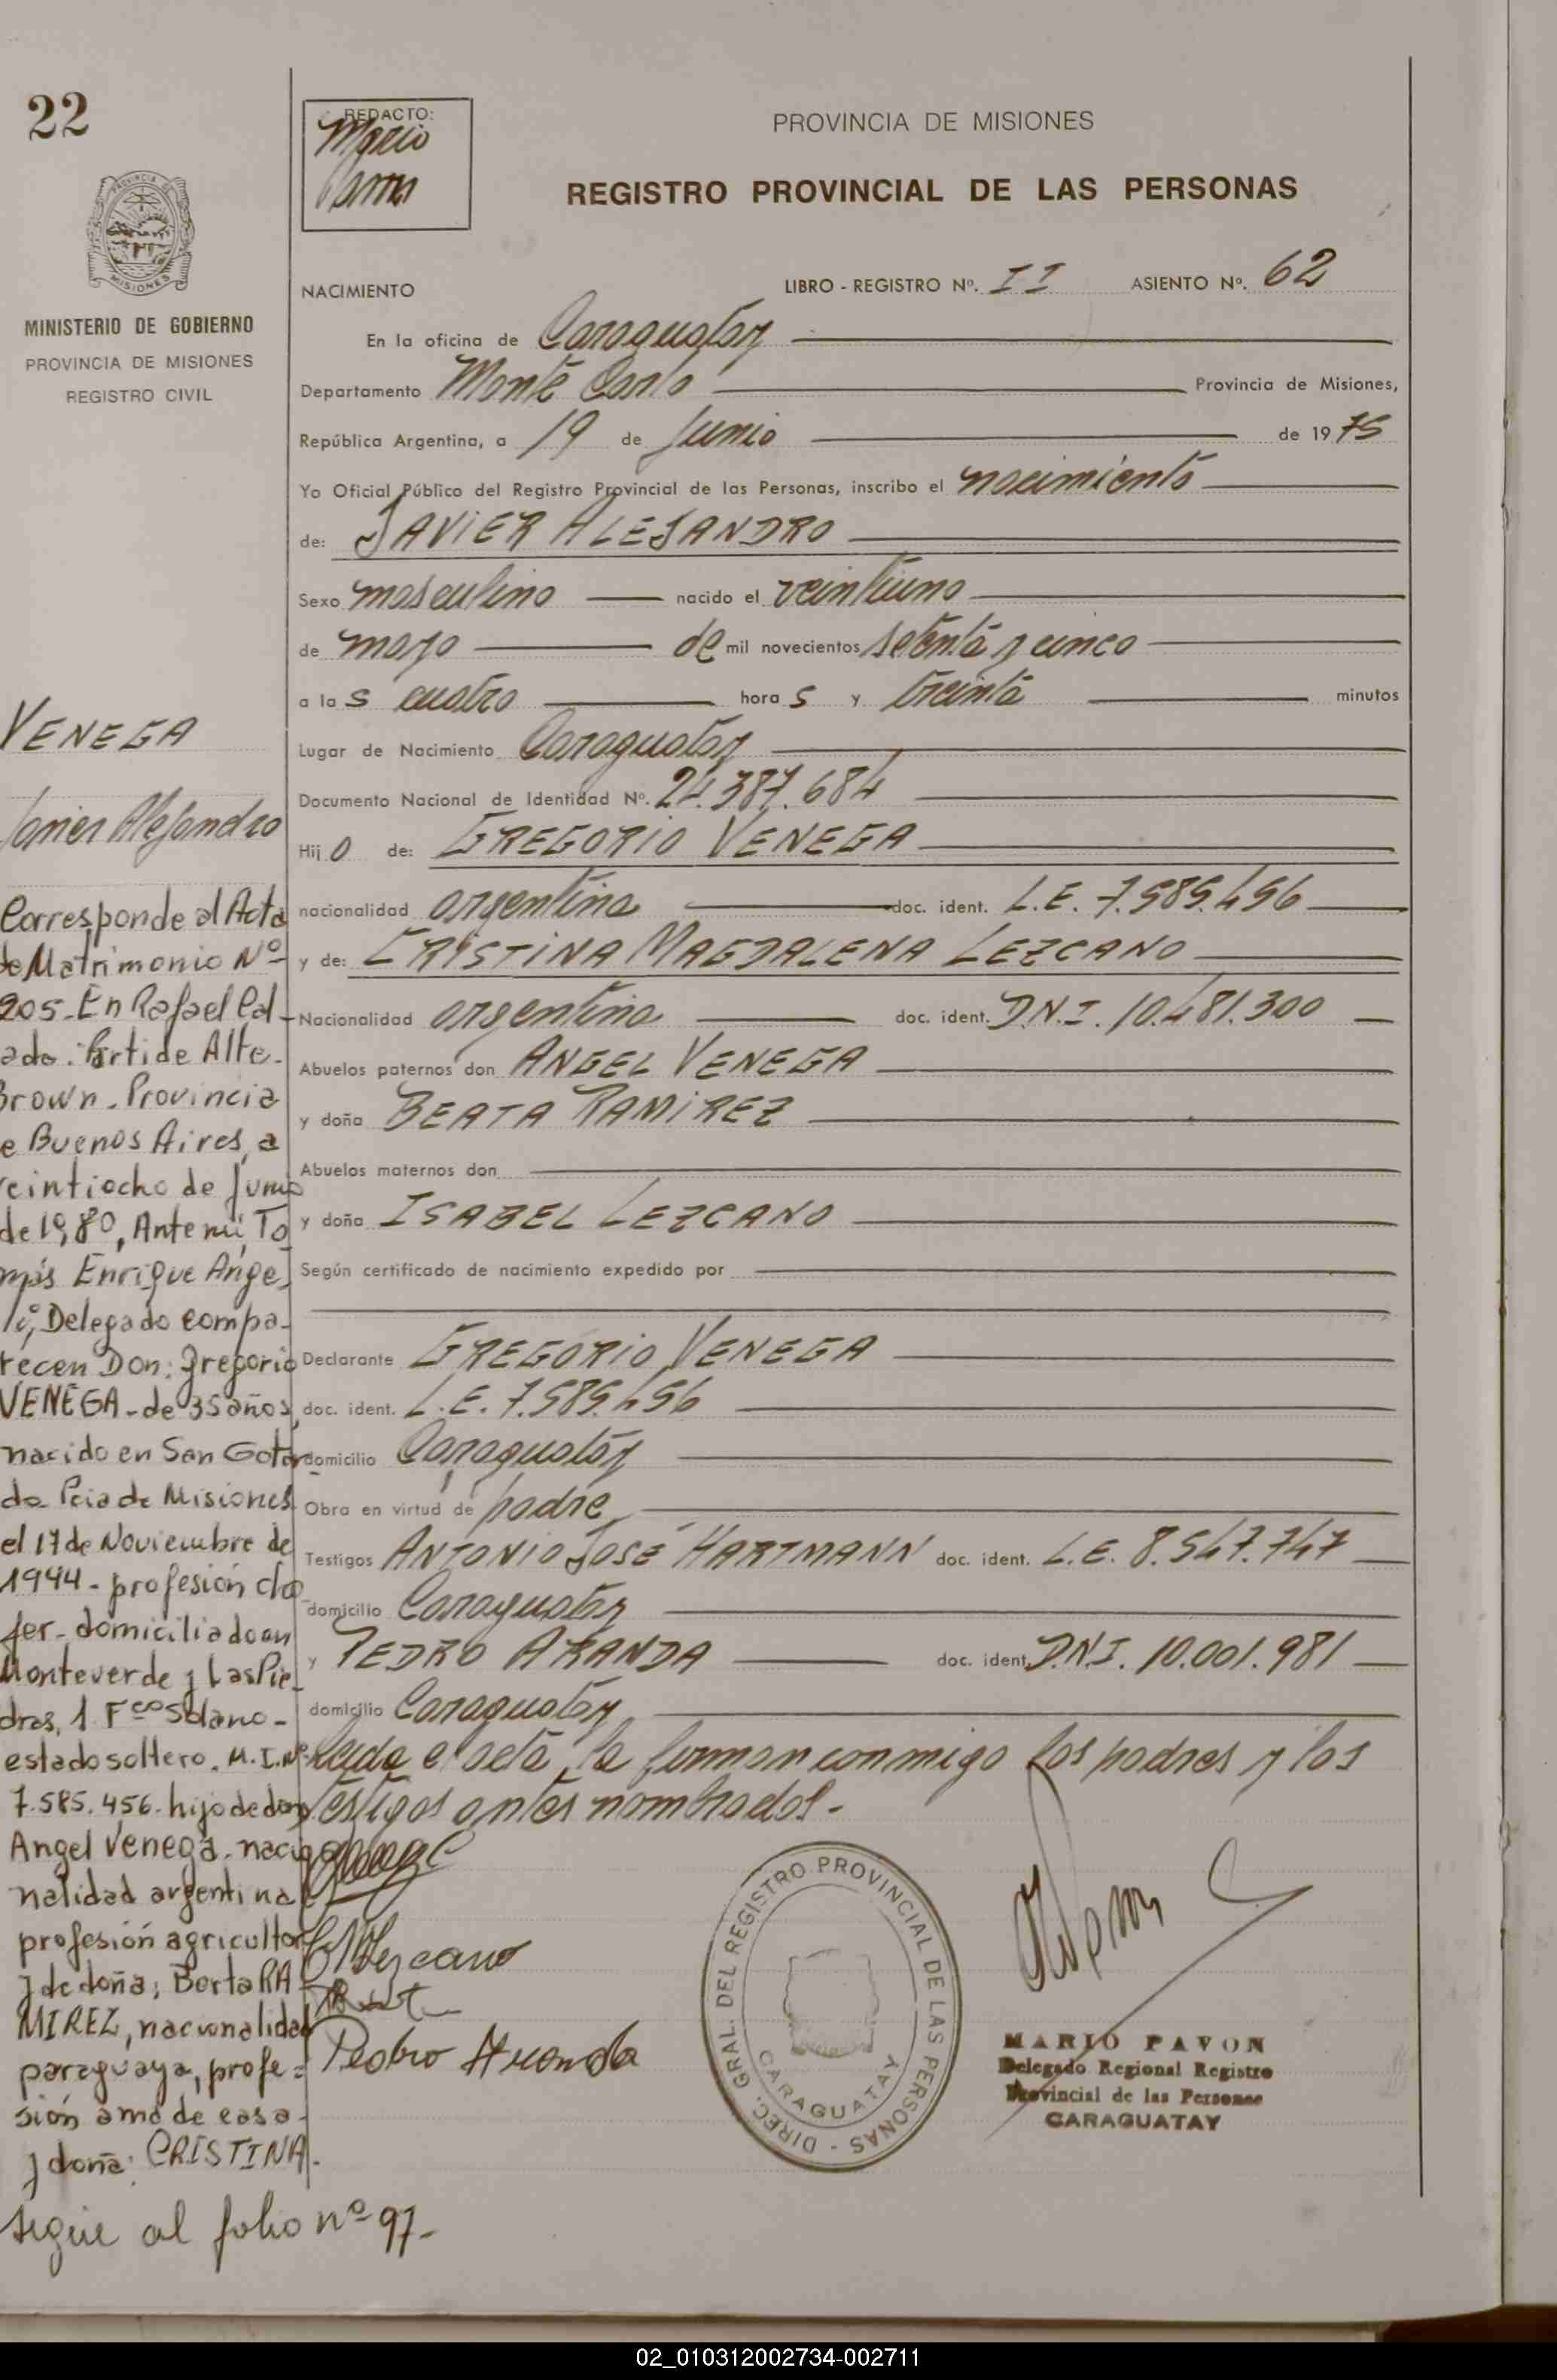 22
REDACTO:
Mario
Pavon
PROVINCIA DE MISIONES
REGISTRO PROVINCIAL DE LAS PERSONAS
PROVINCIA DE
MISIONES
MINISTERIO DE GOBIERNO
PROVINCIA DE MISIONES
REGISTRO CIVIL
NACIMIENTO
LIBRO - REGISTRO Nº. II ASIENTO Nº. 62
En la oficina de Caraguatay
Departamento Monte Carlo Provincia de Misiones,
República Argentina, a 19 de Junio de 1975
Yo Oficial Público del Registro Provincial de las Personas, inscribo el nacimiento
de: JAVIER ALEJANDRO
Sexo masculino nacido el veintiuno
de mayo de mil novecientos setenta y cinco
a las cuatro horas y treinta minutos
Lugar de Nacimiento Caraguatay
Documento Nacional de Identidad Nº. 24.387.684
Hijo de: GREGORIO VENEGA
nacionalidad argentina doc. ident. L.E. 7.585.456
y de: CRISTINA MAGDALENA LEZCANO
Nacionalidad argentina doc. ident. D.N.I. 10.481.300
Abuelos paternos don ANGEL VENEGA
y doña BEATA RAMIREZ
Abuelos maternos don
y doña ISABEL LEZCANO
Según certificado de nacimiento expedido por
Declarante GREGORIO VENEGA
doc. ident. L.E. 7.585.456
domicilio Caraguatay
Obra en virtud de padre
Testigos ANTONIO JOSÉ HARTMANN doc. ident. L.E. 8.547.747
domicilio Caraguatay
y PEDRO ARANDA doc. ident. D.N.I. 10.001.981
domicilio Caraguatay
Leida el acta, la firman conmigo los padres y los
testigos antes nombrados.-
VENEGA
Javier Alejandro
Corresponde al Acta
de Matrimonio Nº
205- En Rafael Cal-
ado. Partide Alte-
Brown- Provincia
e Buenos Aires, a
veintiocho de Junio
de 1980, Ante mí, To
más Enrique Ange-
li, Delegado compa-
recen Don: Gregorio
VENEGA- de 35 años,
nacido en San Gotar
do Pcia de Misiones
el 17 de Noviembre de
1944- profesión cho
fer- domiciliado en
Monteverde y Las Pie-
dras, 1 Fco Solano-
estado soltero. M.I. Nº
7.585.456. hijo de don
Angel Venega. nacio
nalidad argentina
profesión agricultor
y de doña: Berta RA
MIREZ, nacionalidad
paraguaya, profe=
sión ama de casa-
y doña: CRISTINA.
sigue al folio nº 97-
CMLezcano
Pedro Aranda
DIREC. GRAL. DEL REGISTRO PROVINCIAL DE LAS PERSONAS -
CARAGUATAY
MARIO PAVON
Delegado Regional Registro
Provincial de las Personas
CARAGUATAY
02_010312002734-002711